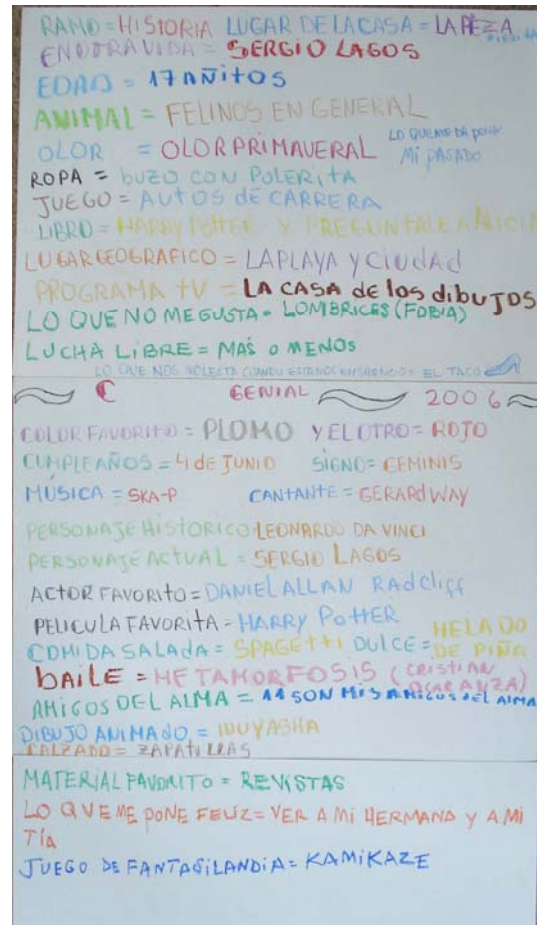 RAMO = HISTORIA LUGAR DE LA CASA = LA PIEZA
EN OTRA VIDA = SERGIO LAGOS
EDAD = 17 AÑITOS
ANIMAL = FELINOS EN GENERAL
OLOR = OLOR PRIMAVERAL LO QUE ME DA PENA
MI PASADO
ROPA = BUZO CON POLERITA
JUEGO = AUTOS DE CARRERA
LIBRO = HARRY POTTER Y PREGUNTALE A ALICIA
LUGAR GEOGRAFICO = LA PLAYA Y CIUDAD
PROGRAMA TV = LA CASA de los dibujos
LO QUE NO ME GUSTA = LOMBRICES (FOBIA)
LUCHA LIBRE = MAS O MENOS
LO QUE NOS MOLESTA CUANDO ESTAMOS EN SILENCIO = EL TACO
C GENIAL 2006
COLOR FAVORITO = PLOMO Y EL OTRO = ROJO
CUMPLEAÑOS = 4 DE JUNIO SIGNO = GEMINIS
MÚSICA = SKA-P CANTANTE = GERARD WAY
PERSONAJE HISTORICO LEONARDO DA VINCI
PERSONAJE ACTUAL = SERGIO LAGOS
ACTOR FAVORITO = DANIEL ALLAN Radcliff
PELICULA FAVORITA = HARRY POTTER
COMIDA SALADA = SPAGETTI DULCE = HELADO DE PIÑA
BAILE = METAMORFOSIS (CRISTIAN OCARANZA)
AMIGOS DEL ALMA = 11 SON MIS AMIGOS DEL ALMA
DIBUJO ANIMADO = INUYASHA
CALZADO = ZAPATILLAS
MATERIAL FAVORITO = REVISTAS
LO QUE ME PONE FELIZ = VER A MI HERMANA Y A MI
TÍA
JUEGO DE FANTASILANDIA = KAMIKAZE